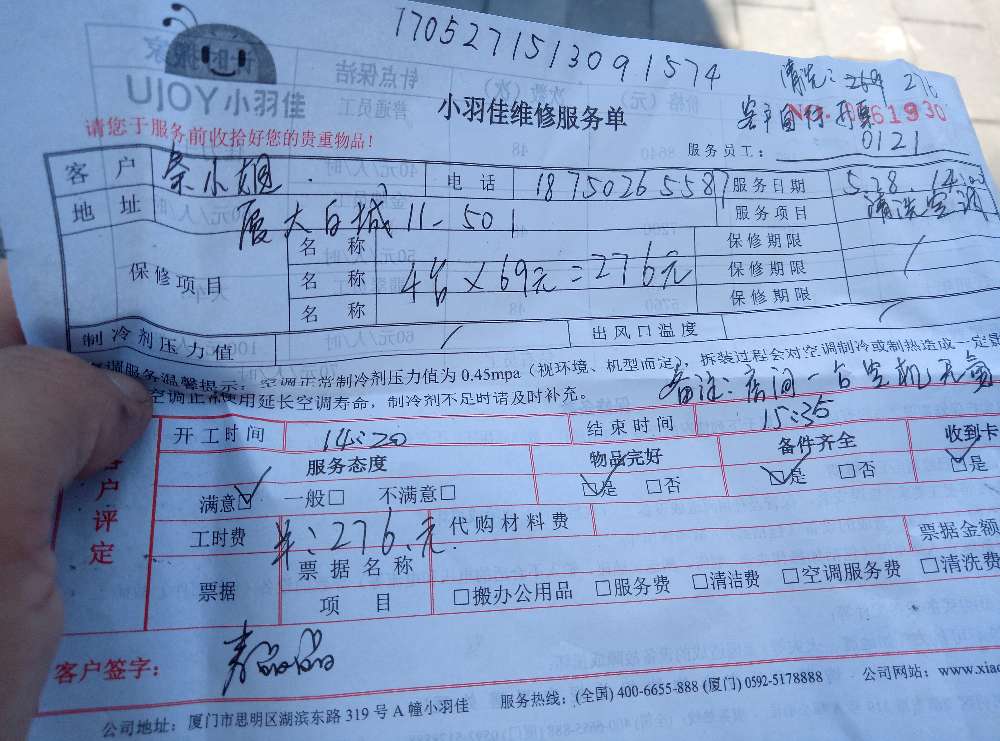 170527151309 1574
UJOY小羽佳
小羽佳维修服务单
清洗:
No.
61930
请您于服务前收拾好您的贵重物品!
服务员工: 0121
客户 小姐 电话 18750265587 服务日期 5.28. 14:20
地址 厦大白城11-501 服务项目 清洗空调
保修项目 名称 保修期限
名称 4台×69元=276元 保修期限 /
名称 保修期限
制冷剂压力值 / 出风口温度 /
空调服务温馨提示: 空调正常制冷剂压力值为0.45mpa(视环境、机型而定), 拆装过程会对空调制冷或制热造成一定影
空调正常使用延长空调寿命, 制冷剂不足时请及时补充。
备注: 房间一台空机无氟
开工时间 14:20 结束时间 15:35
客户评定
服务态度 物品完好 备件齐全 收到卡
满意☑ 一般□ 不满意□ ☑是 □否 ☑是 □否 ☑是
工时费 276.元 代购材料费
票据 票据名称 票据金额
项目 □搬办公用品 □服务费 □清洁费 □空调服务费 □清洗费
客户签字:
公司地址: 厦门市思明区湖滨东路319号A幢小羽佳 服务热线: (全国) 400-6655-888 (厦门) 0592-5178888 公司网站: www.xiao